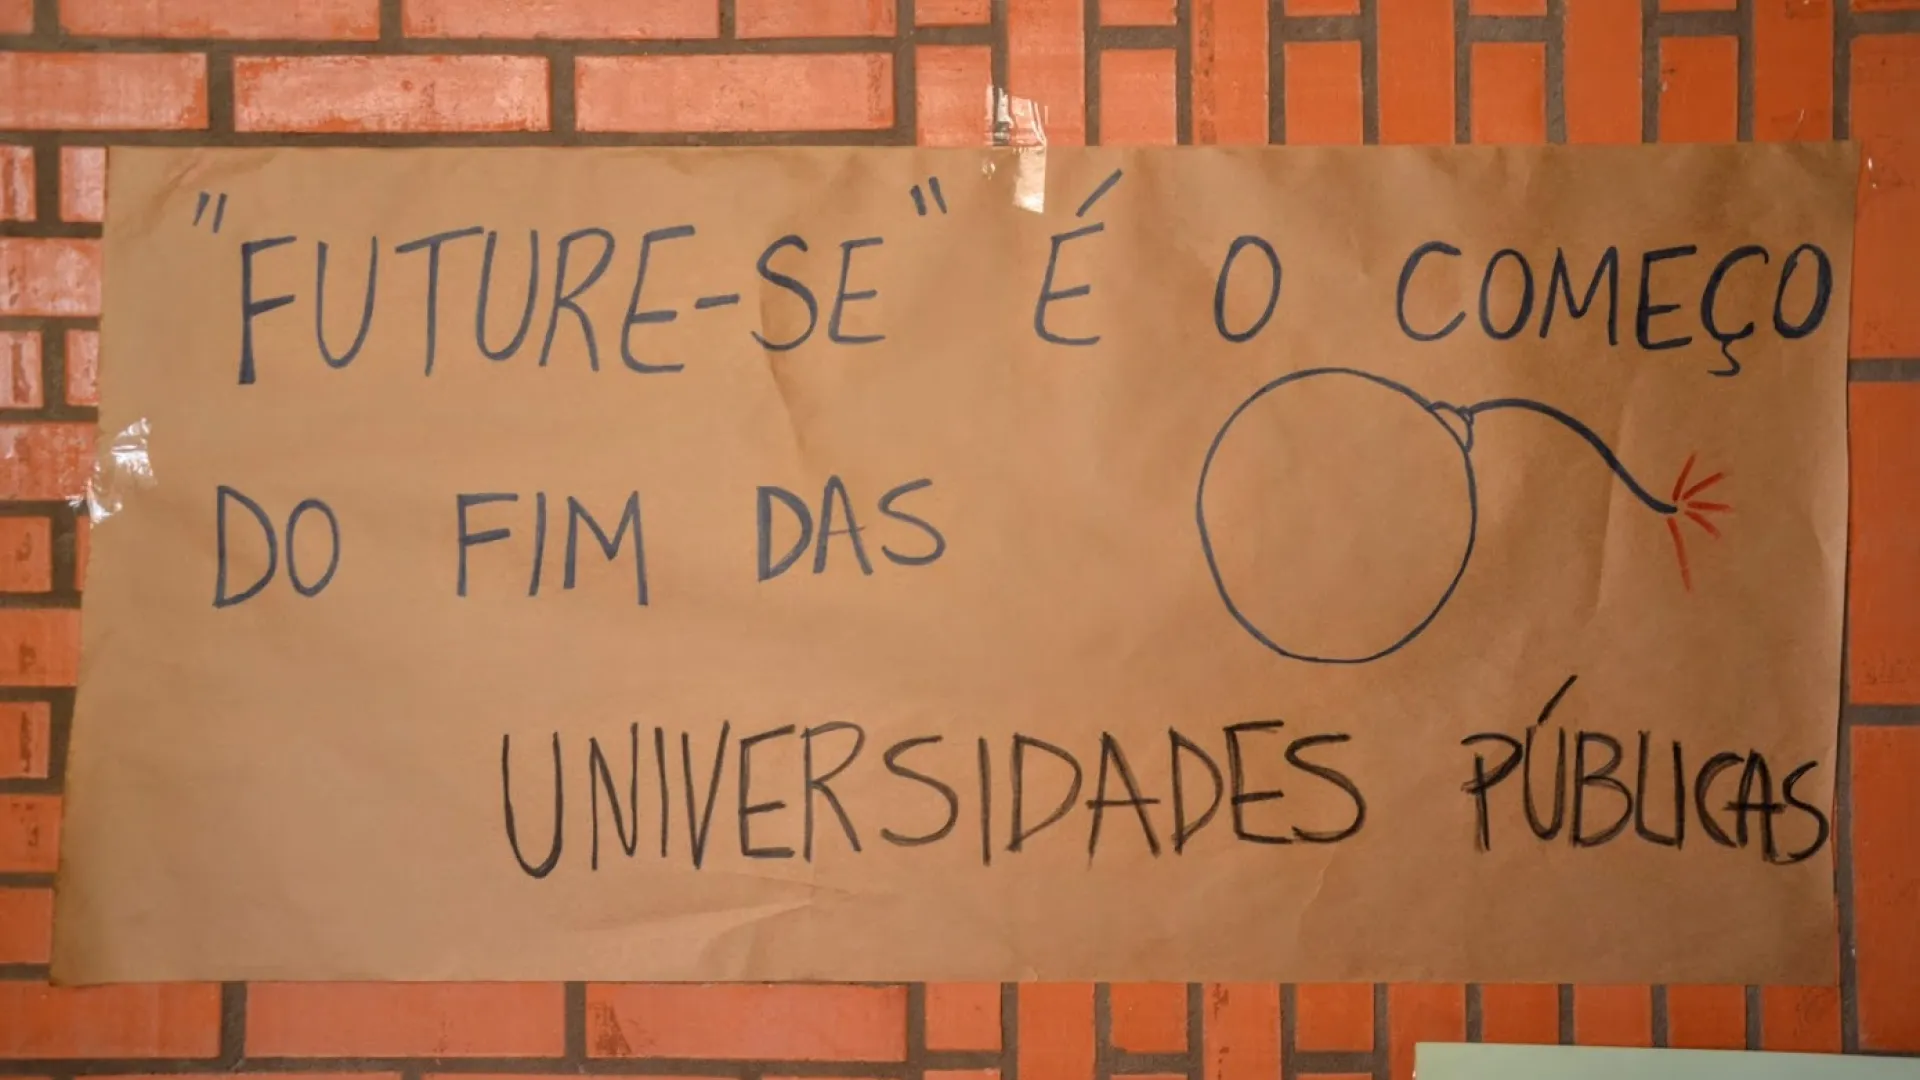 "FUTURE-SE" É O COMEÇO
DO FIM DAS
UNIVERSIDADES PÚBLICAS